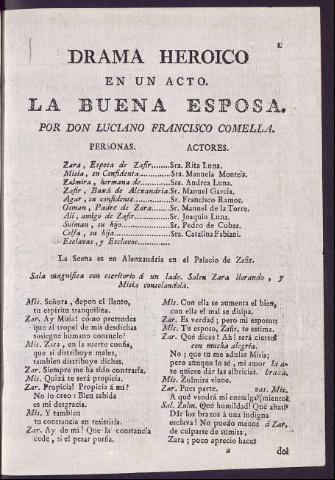 1.
DRAMA HEROICO
EN UN ACTO.
LA BUENA ESPOSA.
POR DON LUCIANO FRANCISCO COMELLA.
PERSONAS. ACTORES.
Zara, Esposa de Zafir........Sra. Rita Luna.
Misia, su Confidenta..........Sra. Manuela Monteis.
Zulmira, hermana de..........Sra. Andrea Luna.
Zafir, Baxá de Alexandria Sr. Manuel García.
Agar, su confidente...........Sr. Francisco Ramos.
Osman, Padre de Zara......Sr. Manuel de la Torre.
Alí, amigo de Zafir...........Sr. Joaquin Luna.
Suliman, su hijo...............Sr. Pedro de Cubas.
Celfa, su hija...................Sra. Catalina Fabiani.
Esclavas, y Esclavos..........
La Scena es en Alexandria en el Palacio de Zafir.
Sala magnífica con escritorio á un lado. Salen Zara llorando, y
Misia consolandola.
Mis. Señora, depon el llanto,
tu espíritu tranquiliza.
Zar. Ay Misia! cómo pretendes
que al tropel de mis desdichas
sosiegue humano consuelo?
Mis. Zara, en la suerte confia,
que si distribuye males,
tambien distribuye dichas.
Zar. Siempre me ha sido contraria.
Mis. Quizá te será propicia.
Zar. Propicia! Propicia á mí?
No lo creo: Bien sabida
es mi desgracia.
Mis. Y tambien
tu constancia en resistirla.
Zar. Ay de mí! Que la constancia
cede, si el pesar porfia.
Mis. Con ella se aumenta el bien,
con ella el mal se disipa.
Zar. Es verdad; pero mi esposo:
Mis. Tu esposo, Zafir, te estima.
Zar. Qué dices? Ah! será cierto?
con mucha alegría.
No; que tu me adulas Misia;
pero aunque lo sé, mi amor la
te quiere dár las albricias. braza.
Mis. Zulmira viene.
Zar. Pues parte. vas. Mis.
A qué vendrá mi enemiga? (miento
Sal. Zulm. Qué humildad! Qué abati-
Dás los brazos á una indigna
esclava! No puedo menos á Zar.
de culparte de sumisa,
Zara; poco aprecio haces
a del